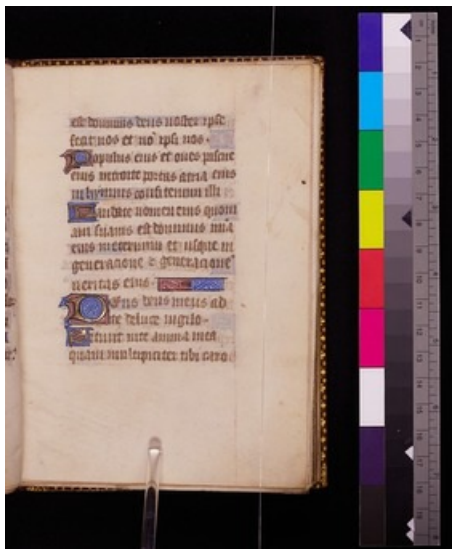 est dominus deus noster ipse
fecit nos et no ipsi nos.
Populus eius et oves pascue
eius introite portas atria eius
in hymnis confitemini illi
Laudate nomen eius quoni
am suavis est dominus mia
eius in eternum et usque in
generacione & generacione
veritas eius.
Deus deus meus ad
te de luce vigilo.
Sitivit in te anima mea
quam multipliciter tibi caro